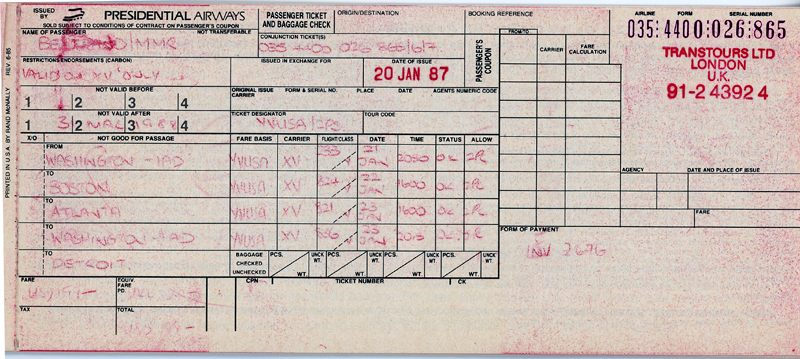 ISSUED BY PRESIDENTIAL AIRWAYS
SOLD SUBJECT TO CONDITIONS OF CONTRACT ON PASSENGER'S COUPON
PASSENGER TICKET AND BAGGAGE CHECK
ORIGIN/DESTINATION
BOOKING REFERENCE
AIRLINE FORM SERIAL NUMBER
035:4400:026:865
NAME OF PASSENGER NOT TRANSFERABLE
CONJUNCTION TICKET(S)
035 4400 026 866/6/7
PASSENGER'S COUPON
FROM/TO CARRIER FARE CALCULATION
TRANSTOURS LTD
LONDON
U.K.
91-2 4392 4
RESTRICTIONS/ENDORSEMENTS (CARBON)
VALID ON XV ONLY
ISSUED IN EXCHANGE FOR
DATE OF ISSUE
20 JAN 87
NOT VALID BEFORE
1 2 3 4
ORIGINAL ISSUE CARRIER FORM & SERIAL NO. PLACE DATE AGENTS NUMERIC CODE
NOT VALID AFTER
1 2 3 4
TICKET DESIGNATOR TOUR CODE
X/O NOT GOOD FOR PASSAGE FARE BASIS CARRIER FLIGHT/CLASS DATE TIME STATUS ALLOW
FROM
WASHINGTON - IAD YVUSA XV Y 21 JAN 2050 OK 2PC
TO
BOSTON YVUSA XV Y 22 JAN 1600 OK 2PC
TO
ATLANTA YVUSA XV Y 23 JAN 1600 OK 2PC
TO
WASHINGTON - IAD YVUSA XV Y 23 JAN 2015 OK 2PC
TO
DETROIT
BAGGAGE CHECKED UNCHECKED PCS. WT. UNCK WT. PCS. WT. UNCK WT. PCS. WT. UNCK WT. PCS. WT. UNCK WT.
AGENCY DATE AND PLACE OF ISSUE
FARE
FORM OF PAYMENT
INV 2676
FARE EQUIV. FARE PD. CPN TICKET NUMBER CK
TAX TOTAL
PRINTED IN U.S.A. BY RAND McNALLY REV. 6-85